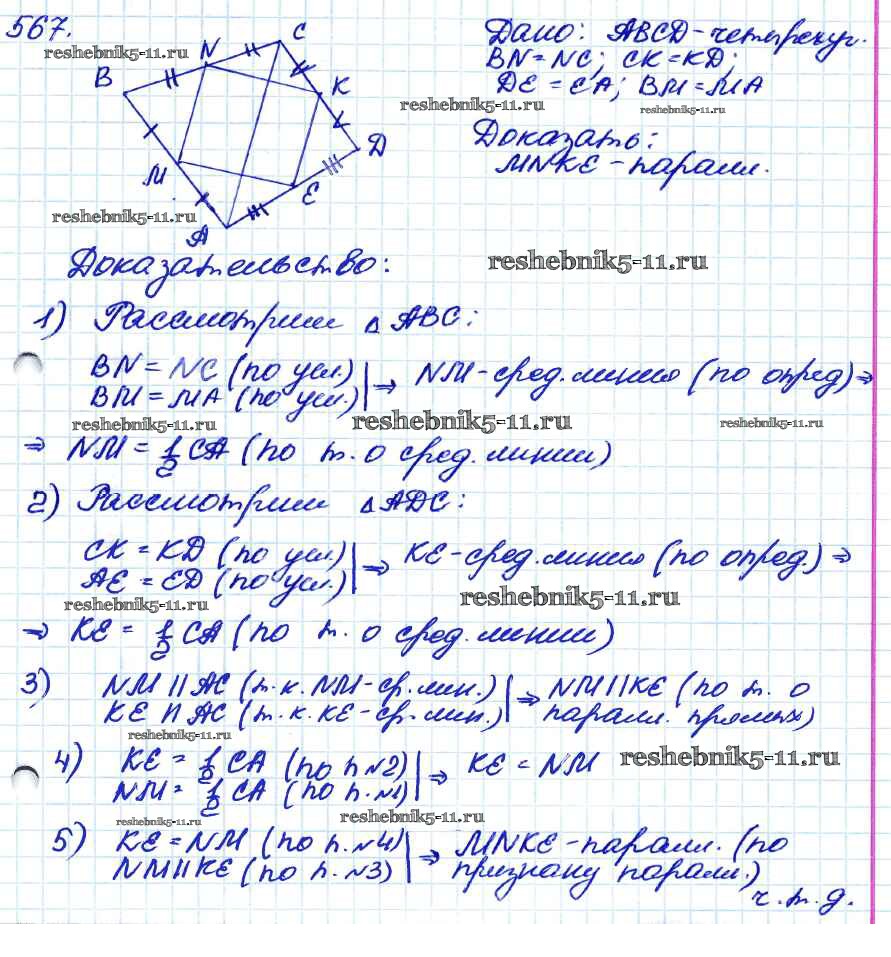 567.
reshebnik5-11.ru
B N C K D E A M
Дано: ABCD - четырехуг.
BN = NC; CK = KD;
DE = EA; BM = MA
reshebnik5-11.ru
reshebnik5-11.ru
Доказать:
MNKE - паралл.
reshebnik5-11.ru
Доказательство:
reshebnik5-11.ru
1) Рассмотрим △ABC:
BN = NC (по усл.) | ⇒ NM - сред. линия (по опред) ⇒
BM = MA (по усл.)
reshebnik5-11.ru
reshebnik5-11.ru
reshebnik5-11.ru
⇒ NM = 1/2 CA (по т. о сред. линии)
2) Рассмотрим △ADC:
CK = KD (по усл.) | ⇒ KE - сред. линия (по опред.) ⇒
AE = ED (по усл.)
reshebnik5-11.ru
reshebnik5-11.ru
⇒ KE = 1/2 CA (по т. о сред. линии)
3) NM || AC (т.к. NM - ср. лин.) | ⇒ NM || KE (по т. о
KE || AC (т.к. KE - ср. лин.) | паралл. прямых)
reshebnik5-11.ru
4) KE = 1/2 CA (по п. №2) | ⇒ KE = NM
reshebnik5-11.ru
NM = 1/2 CA (по п. №1)
reshebnik5-11.ru
reshebnik5-11.ru
5) KE = NM (по п. №4) | ⇒ MNKE - паралл. (по
NM || KE (по п. №3) | признаку паралл.)
ч.т.д.